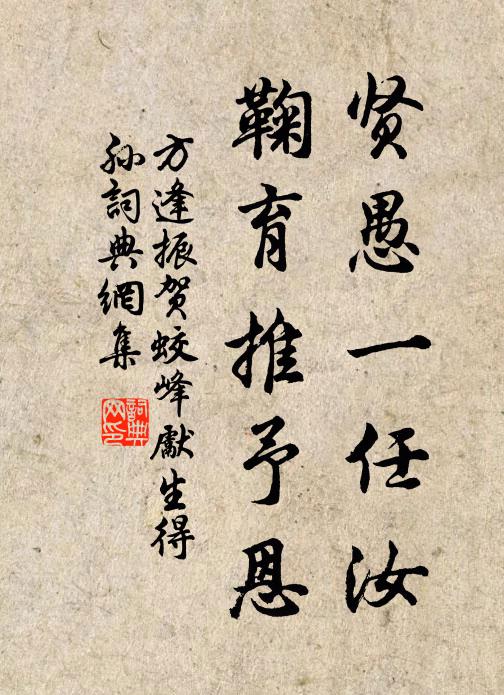 贤愚一任汝
鞠育推予恩
方逢振贺蛟峰獻生得
孙詞典網集
詞典网印